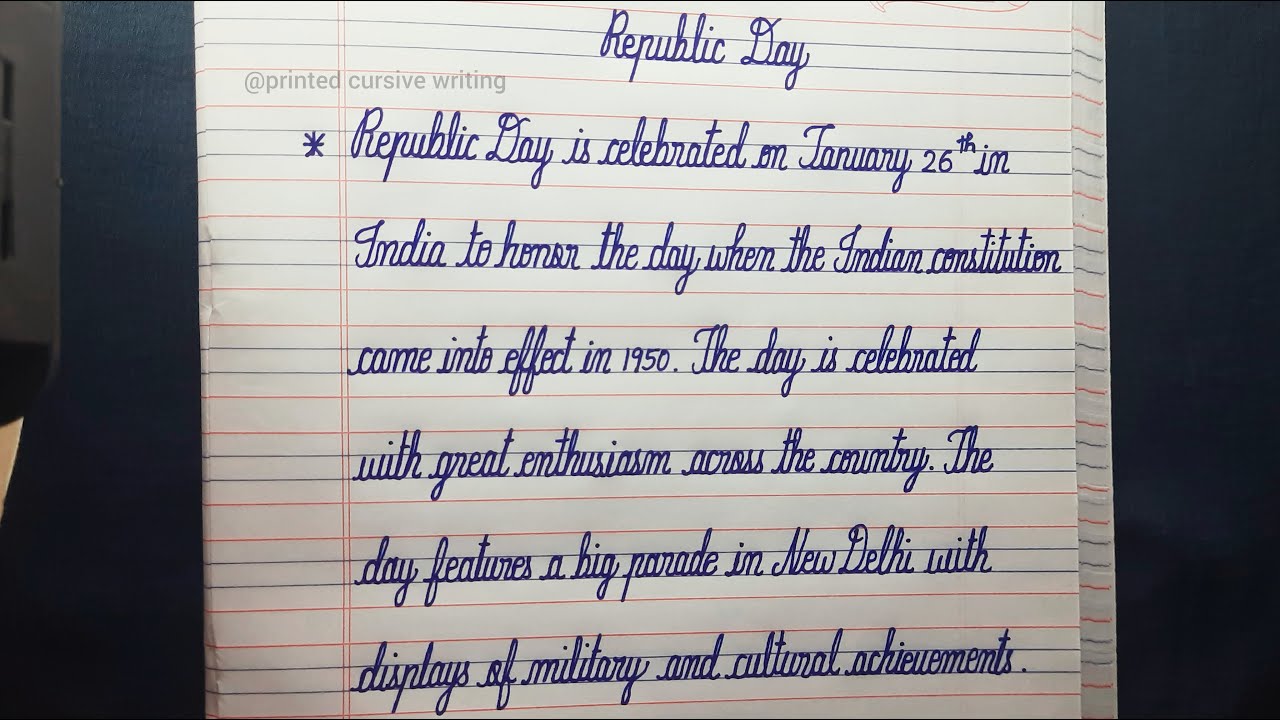 Republic Day
@printed cursive writing
* Republic Day is celebrated on January 26th in
India to honor the day when the Indian constitution
came into effect in 1950. The day is celebrated
with great enthusiasm across the country. The
day features a big parade in New Delhi with
displays of military and cultural achievements.